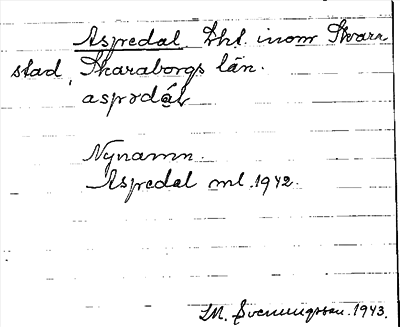 Aspedal Lht. inom Kvarn
stad, Skaraborgs län.
aspədɑ̀l
Nynamn.
Aspedal ml. 1942.
M. Sveningsson. 1943.